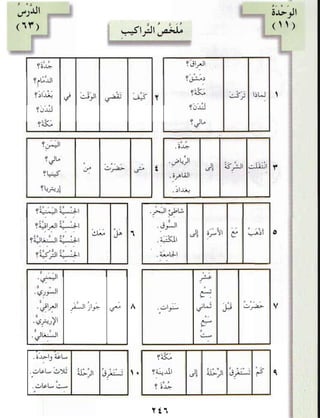 الوَحْدَةُ
(١١)
مُلَخَّصُ التَّراكيبِ
الدَّرْسُ
(٦٣)
١ لماذا تَرَكْتَ
العراقَ؟
دِمَشْقَ؟
مَكَّةَ؟
لَنْدَنَ؟
مالي؟
٢ كَيْفَ تَقْضي الوَقْتَ في
جُدَّةَ؟
الدَّمّامِ؟
بَغْدادَ؟
لَنْدَنَ؟
مَكَّةَ؟
٣ انْتَقَلَت الشَّرِكَةُ إلى
جُدَّةَ.
الرِّياضِ.
القاهِرةِ.
بغدادَ.
٤ مَتى حَضَرْتَ مِنَ
اليَمَنِ؟
مالي؟
كينيا؟
إريتريا؟
٥ أذْهَبُ مَعَ الأُسْرَةِ إلى
شاطِئِ البَحْرِ.
السُّوقِ.
المَكْتَبَةِ.
الجامعَةِ.
٦ هَلْ مَعَكَ
الجِنْسِيَّةُ اليَمَنِيَّةُ؟
الجِنْسِيَّةُ العِراقِيَّةُ؟
الجِنْسِيَّةُ السِّنغالِيَّةُ؟
الجِنْسِيَّةُ التُّرْكِيَّةُ؟
٧ حَضَرْتُ قَبْلَ
عَشْرِ
تِسْعِ
ثَماني
سَبْعِ
سِتِّ
سَنَواتٍ.
٨ مَعي جَوازُ السَّفَرِ
اليَمَنِيُّ.
السوريُّ.
العِراقيُّ.
الإريتريُّ.
السِّنغاليُّ.
٩ كَمْ تَسْتَغْرِقُ الرِّحْلَةُ إلى
مَكَّةَ؟
المَدينَةِ؟
جُدَّةَ؟
١٠ تَسْتَغْرِقُ الرِّحْلَةُ
ساعَةً واحِدَةً.
ثَلاثَ ساعاتٍ.
سِتَّ ساعاتٍ.
٢٤٦